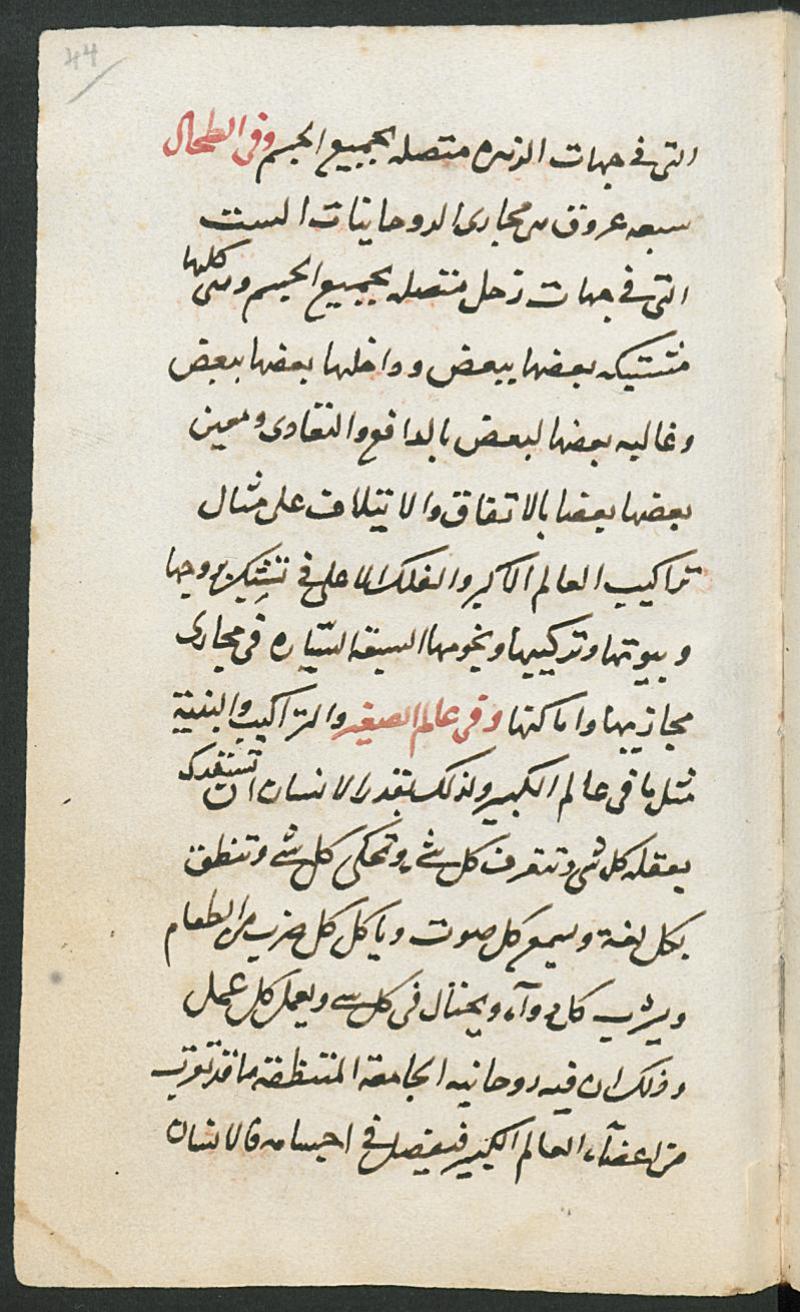 44
التى فى جهات الزهره متصله بجميع الجسم وفى الطحال
سبعه عروق من مجارى الروحانيات الست
التى فى جهات زحل متصله بجميع الجسم وهى كلها
مشتبكه بعضها ببعض وداخلها بعضها ببعض
وغالبه بعضها لبعض بالدافع والتعادى ومعين
بعضها بعضا بالاتفاق والايتلاف على مثال
تراكيب العالم الاكبر والفلك الاعلى فى تشبيك بروجها
وبيوتها وتركيبها ونجومها السبعة السيّاره فى مجارى
مجازيها واماكنها وفى عالم الصغير والتراكيب والبنية
مثل ما فى عالم الكبير ولذلك يقدر الانسان ان
بعقله كل شى وتتعرف كل شى وتحكى كل شى وتنطق
بكل لغة ويسمع كل صوت وياكل كل ضرب من الطعام
ويشرب كل دوآء ويحتال فى كل شى ويعمل كل عمل
وذلك ان فيه روحانيه الجامعة المنتظمة ما قد تفرق
من اعضآء العالم الكبير فيفصل فى اجسامه فالانسان